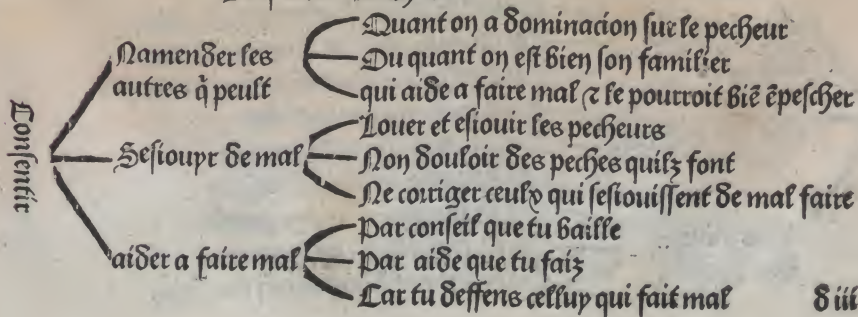 Consentir
Namender les
autres q̄ peult
Quant on a dominacion sur le pecheur
Ou quant on est bien son familier
qui aide a faire mal ⁊ le pourroit biē ēpescher
Sesiouyr de mal
Louer et esiouir les pecheurs
Non douloir des peches quilz font
Ne corriger ceulx qui sesiouissent de mal faire
aider a faire mal
Par conseil que tu baille
Par aide que tu faiz
Car tu deffens celluy qui fait mal
d iii